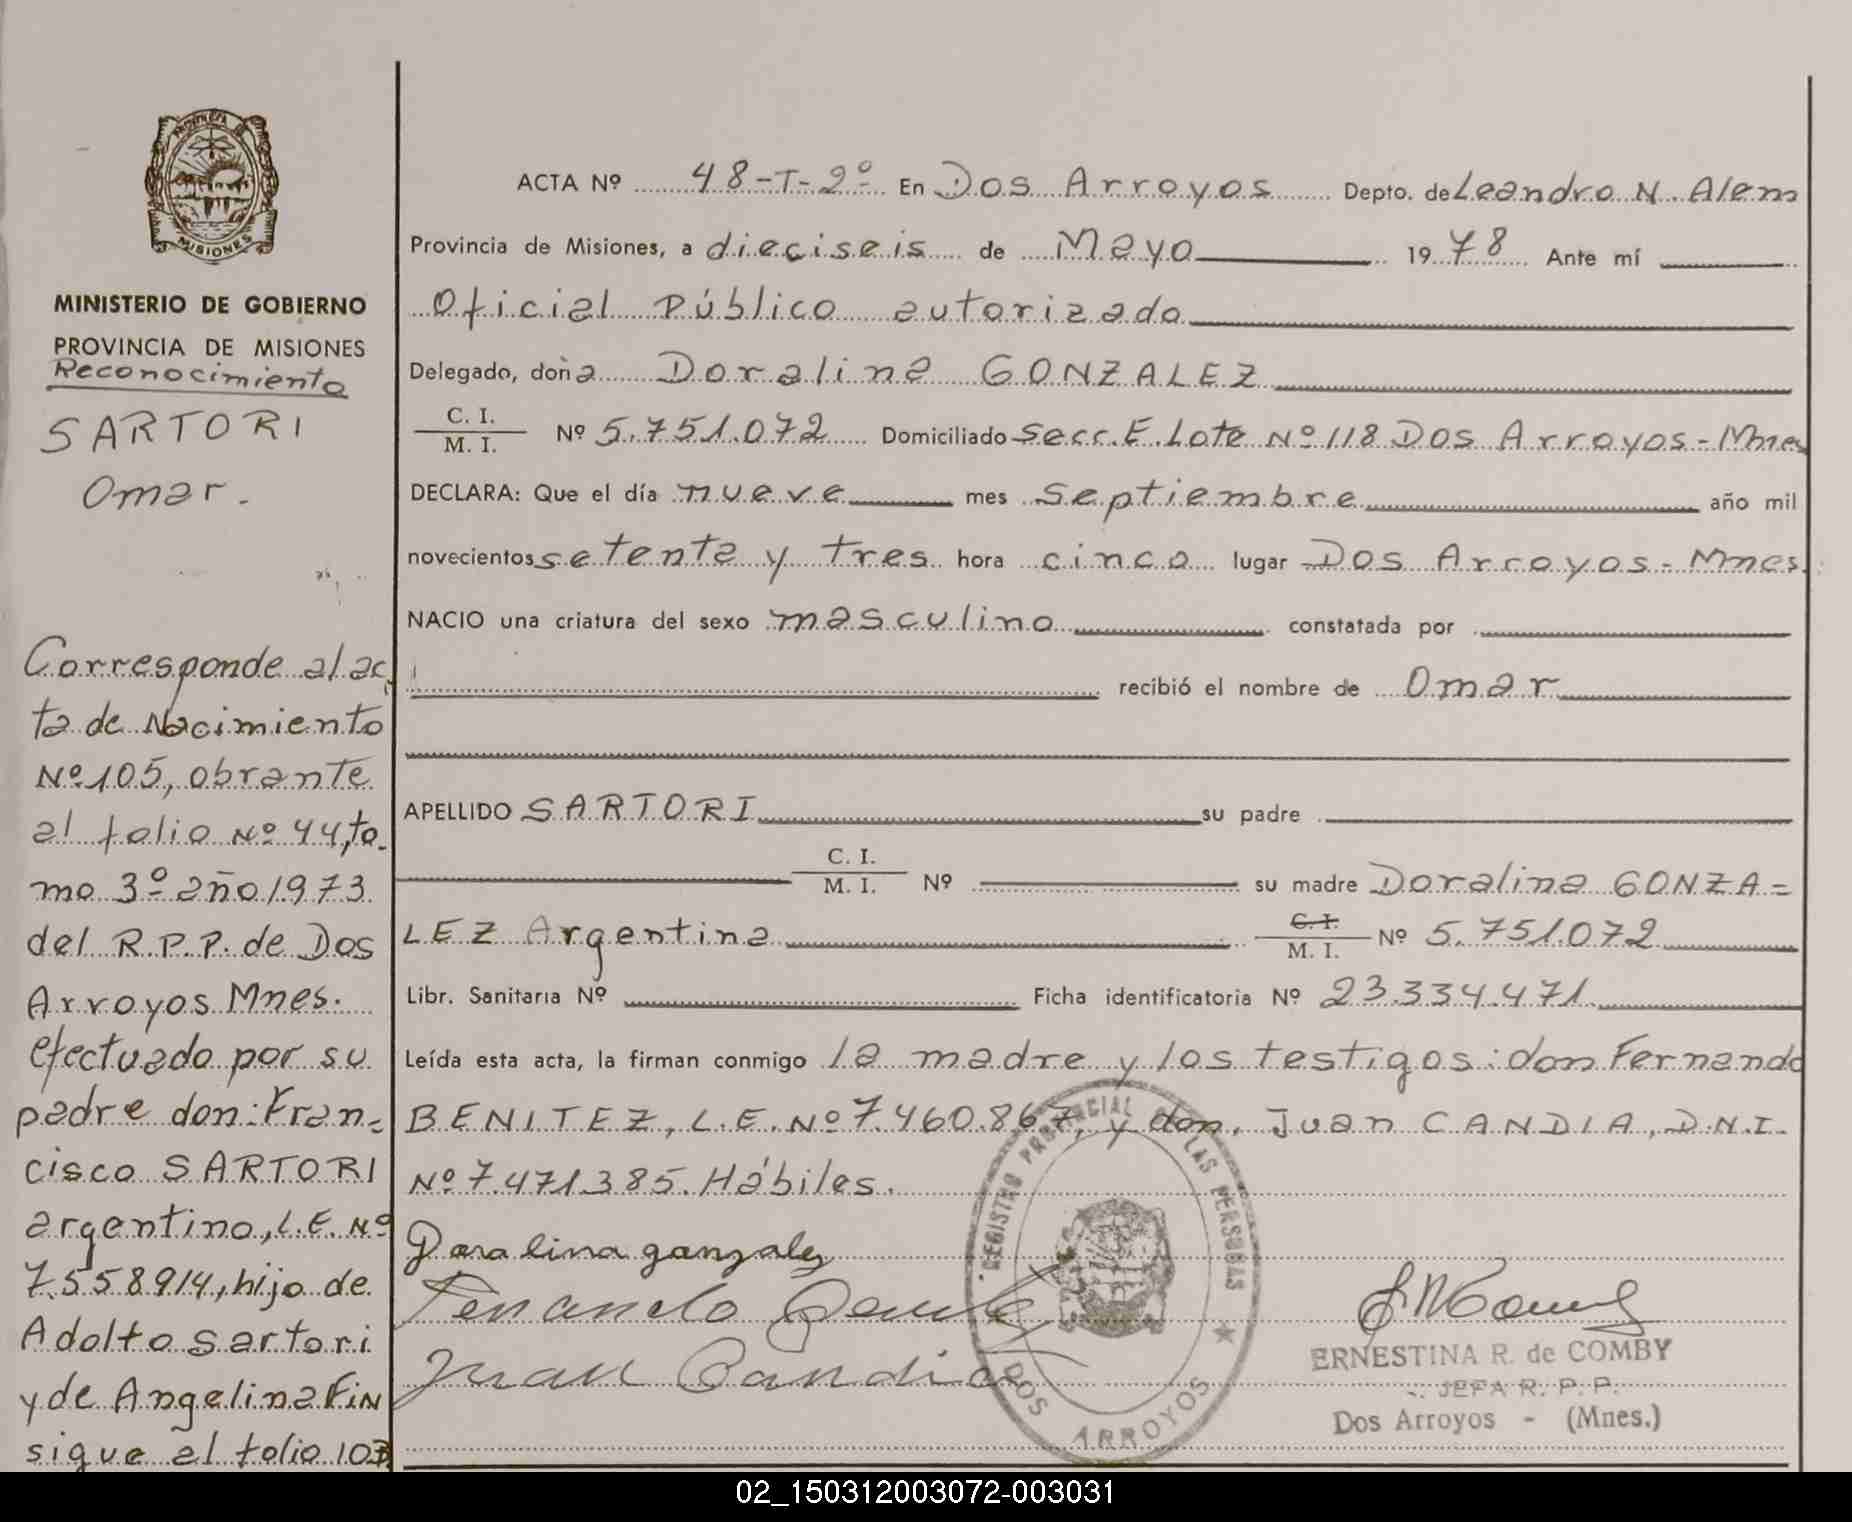 PROVINCIA DE
MISIONES
MINISTERIO DE GOBIERNO
PROVINCIA DE MISIONES
Reconocimiento
SARTORI
Omar.
Corresponde al ac
ta de Nacimiento
Nº 105, obrante
al folio Nº 44, to-
mo 3º año 1973
del R.P.P. de Dos
Arroyos Mnes.
efectuado por su
padre don: Fran=
cisco SARTORI
argentino, L.E. Nº
7.558914, hijo de
Adolfo Sartori
y de Angelina FIN
sigue al folio 103
ACTA Nº 48-T-2º En Dos Arroyos Depto. de Leandro N. Alem
Provincia de Misiones, a dieciseis de Mayo 1978 Ante mí
Oficial Público autorizado
Delegado, doña Doralina GONZALEZ
C. I.
M. I. Nº 5.751.072 Domiciliado Secc. E. Lote Nº 118 Dos Arroyos - Mnes
DECLARA: Que el día nueve mes Septiembre año mil
novecientos setenta y tres hora cinco lugar Dos Arroyos - Mnes.
NACIO una criatura del sexo masculino constatada por
recibió el nombre de Omar
APELLIDO SARTORI su padre
C. I.
M. I. Nº su madre Doralina GONZA=
LEZ Argentina C. I. M. I. Nº 5.751.072
Libr. Sanitaria Nº Ficha identificatoria Nº 23.334.471
Leída esta acta, la firman conmigo la madre y los testigos: don Fernando
BENITEZ, L.E. Nº 7.460.867, y don, Juan CANDIA, D.N.I.
Nº 7.471.385. Hábiles.
Doralina gonzalez
Fernando Benitez
Juan Candia
REGISTRO PROVINCIAL DE LAS PERSONAS
DOS ARROYOS
ERNESTINA R. de COMBY
JEFA R. P. P.
Dos Arroyos - (Mnes.)
02_150312003072-003031